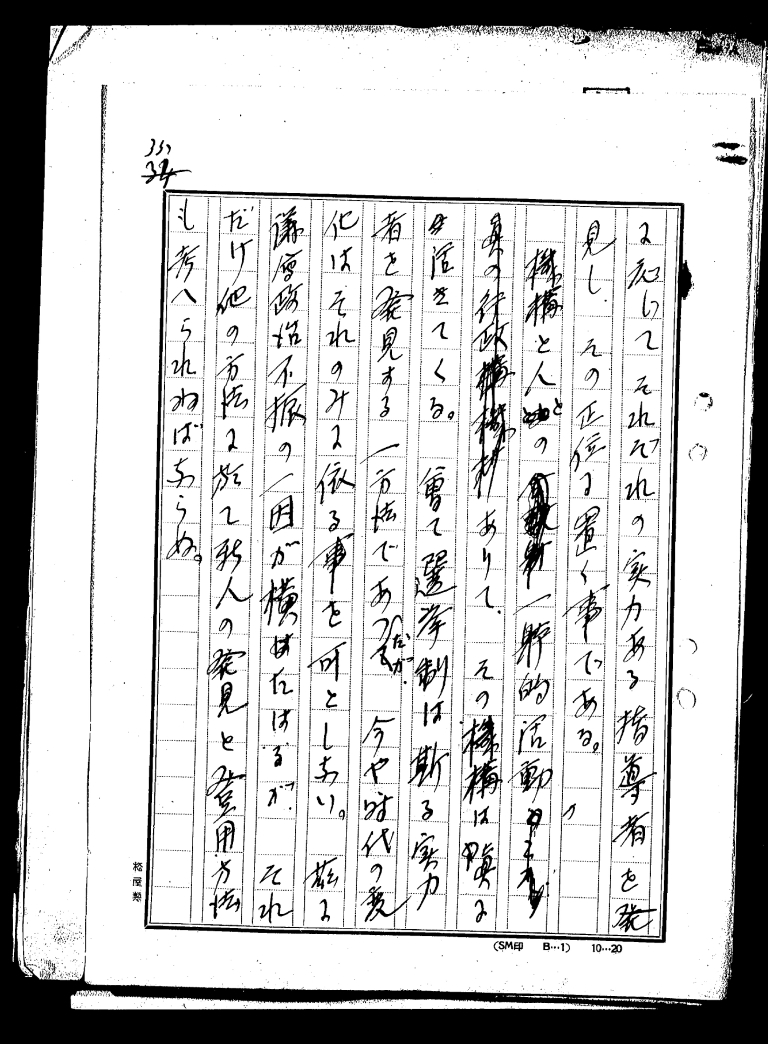 337
34
に応じてそれぞれの実力ある指導者を発
見し、その正位に置く事である。
機構と人との一体的活動
真の行政機構ありて、その機構は真に
活きてくる。曾て選挙制は斯る実力
者を発見する一方法であつたが、今や時代の変
化はそれのみに依る事を可としない。茲に
議会政治不振の一因が横はたはるが、それ
だけ他の方法に於て新人の発見と登用方法
も考へられねばならぬ。
松屋製
(SM印 B…1) 10…20